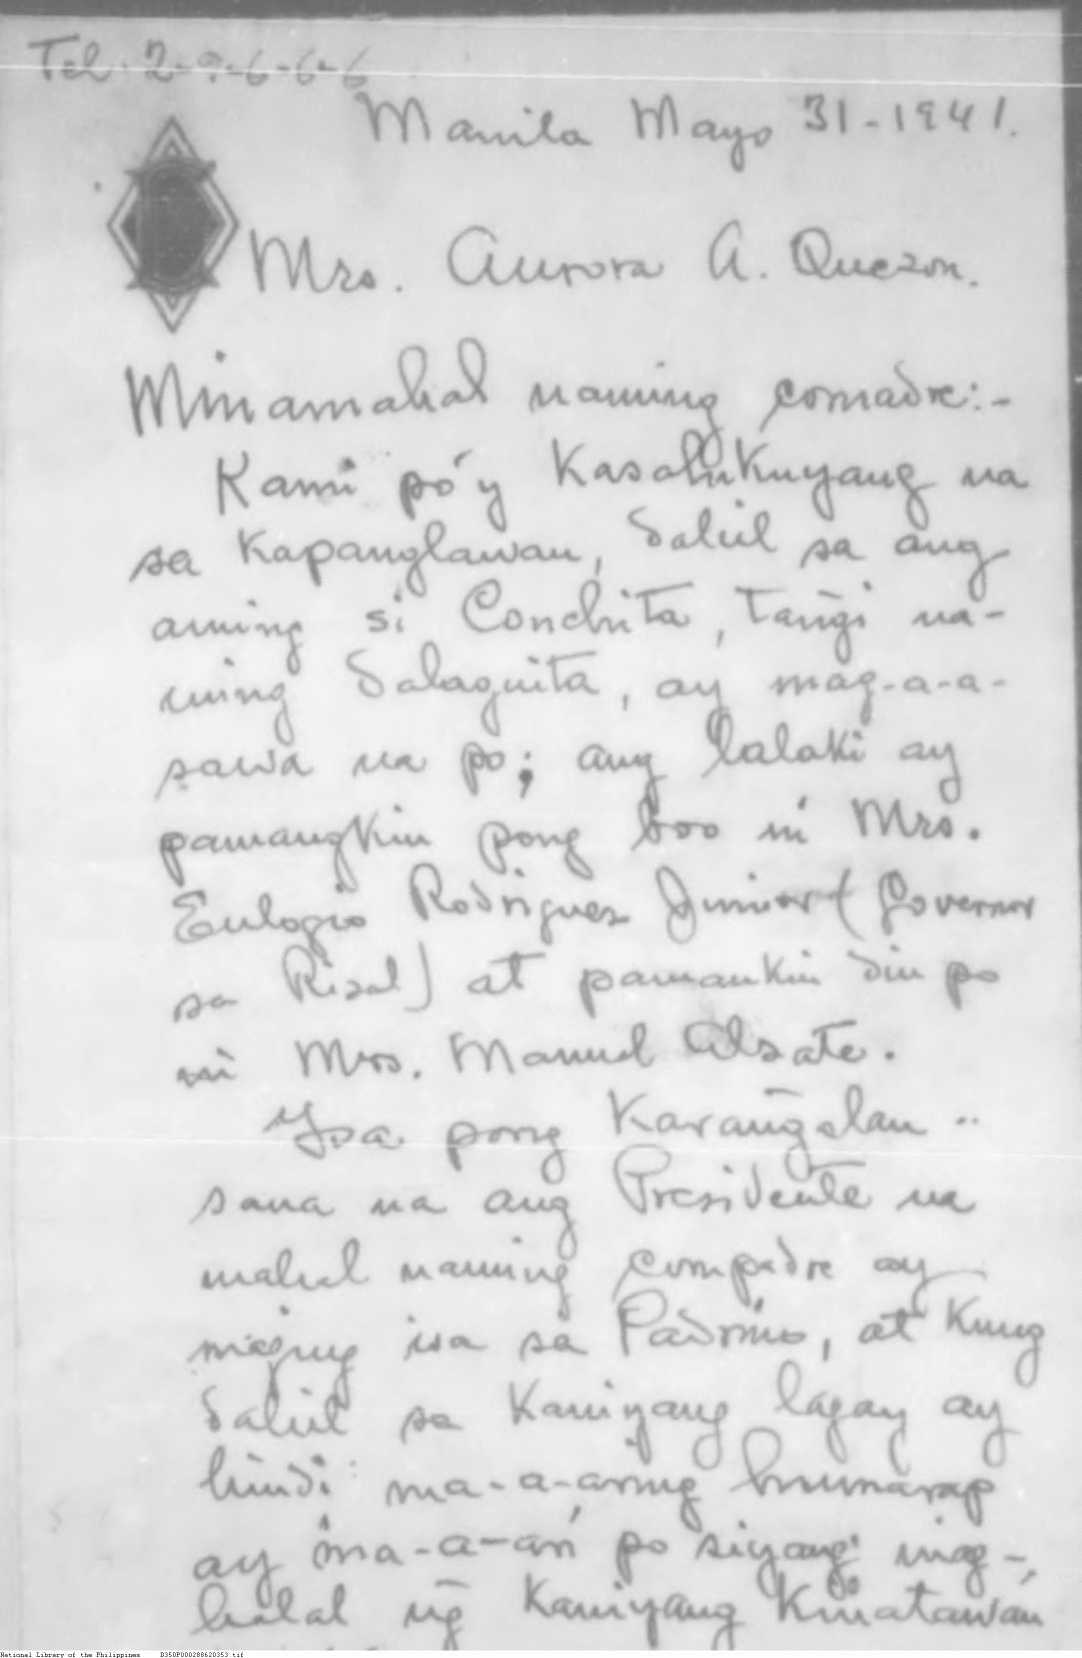 Tel. 2-9-6-6-6
Manila Mayo 31-1941.
Mrs. Aurora A. Quezon.
Minamahal naming comadre:-
Kami pó'y kasalukuyang na
sa kapanglawan, dahil sa ang
aming si Conchita, tang̃i na-
ming dalaguita, ay mag-a-a-
sawa na po; ang lalaki ay
pamangkin pong boo ni Mrs.
Eulogio Rodriguez Junior (Governor
sa Rizal) at pamankin din po
ni Mrs. Manuel Alzate.
Ysa pong karang̃alan
sana na ang Presidente na
mahal naming compadre ay
maging isa sa Padrino, at kung
dahil sa kaniyang lagay ay
hindi ma-a-aring humarap
ay ma-a-ari po siyang mag-
halal ng̃ kaniyang kinatawan
National Library of the Philippines B350P000288620353.tif